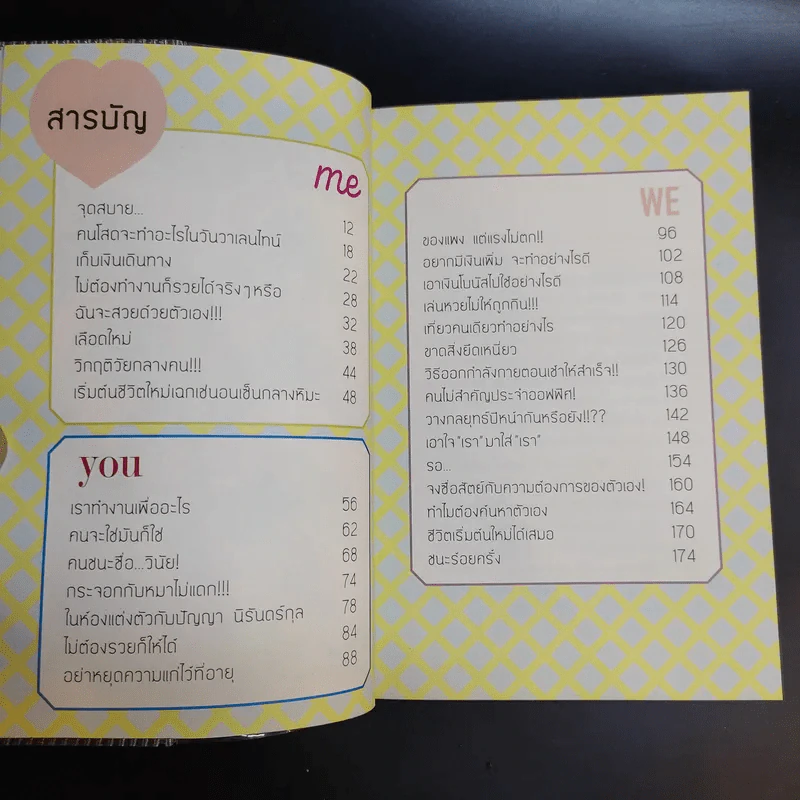 สารบัญ
me
จุดสบาย... 12
คนโสดจะทำอะไรในวันวาเลนไทน์ 18
เก็บเงินเดินทาง 22
ไม่ต้องทำงานก็รวยได้จริงๆหรือ 28
ฉันจะสวยด้วยตัวเอง!!! 32
เลือดใหม่ 38
วิกฤติวัยกลางคน!!! 44
เริ่มต้นชีวิตใหม่เฉกเช่นอนเซ็นกลางหิมะ 48
you
เราทำงานเพื่ออะไร 56
คนจะใช่มันก็ใช่ 62
คนชนะชื่อ...วินัย! 68
กระจอกกับหมาไม่แดก!!! 74
ในห้องแต่งตัวกับปัญญา นิรันดร์กุล 78
ไม่ต้องรวยก็ให้ได้ 84
อย่าหยุดความแก่ไว้ที่อายุ 88
WE
ของแพง แต่แรงไม่ตก!! 96
อยากมีเงินเพิ่ม จะทำอย่างไรดี 102
เอาเงินโบนัสไปใช้อย่างไรดี 108
เล่นหวยไม่ให้ถูกกิน!!! 114
เที่ยวคนเดียวทำอย่างไร 120
ขาดสิ่งยึดเหนี่ยว 126
วิธีออกกำลังกายตอนเช้าให้สำเร็จ!! 130
คนไม่สำคัญประจำออฟฟิศ! 136
วางกลยุทธ์ปีหน้ากันหรือยัง!!?? 142
เอาใจ "เรา" มาใส่ "เรา" 148
รอ... 154
จงซื่อสัตย์กับความต้องการของตัวเอง! 160
ทำไมต้องค้นหาตัวเอง 164
ชีวิตเริ่มต้นใหม่ได้เสมอ 170
ชนะร้อยครั้ง 174